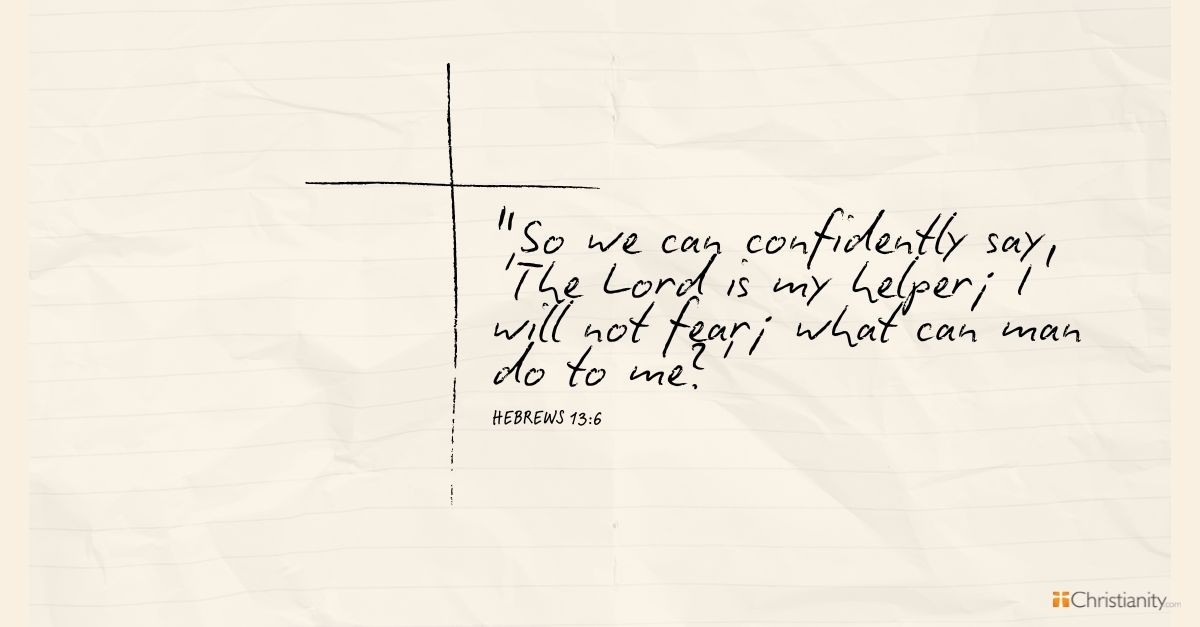 "So we can confidently say,
'The Lord is my helper; I
will not fear; what can man
do to me?'
HEBREWS 13:6
Christianity.com